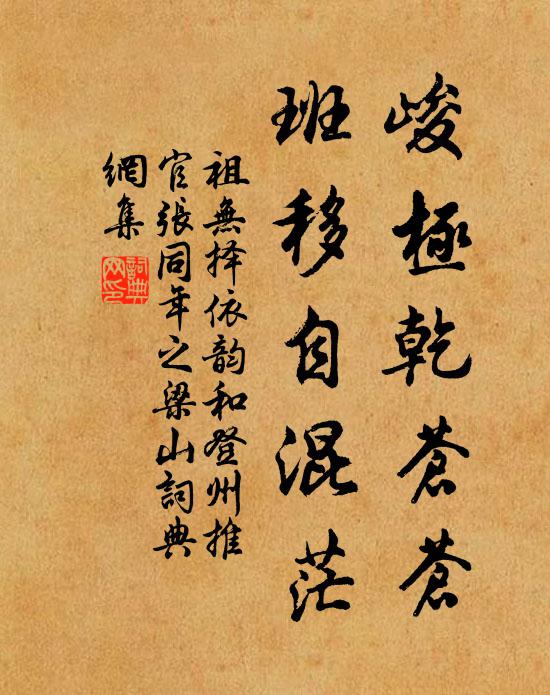 峻極乾蒼蒼
班移自混茫
祖無择依韵和登州推
官張同年之梁山詞典
網集
詞典網印